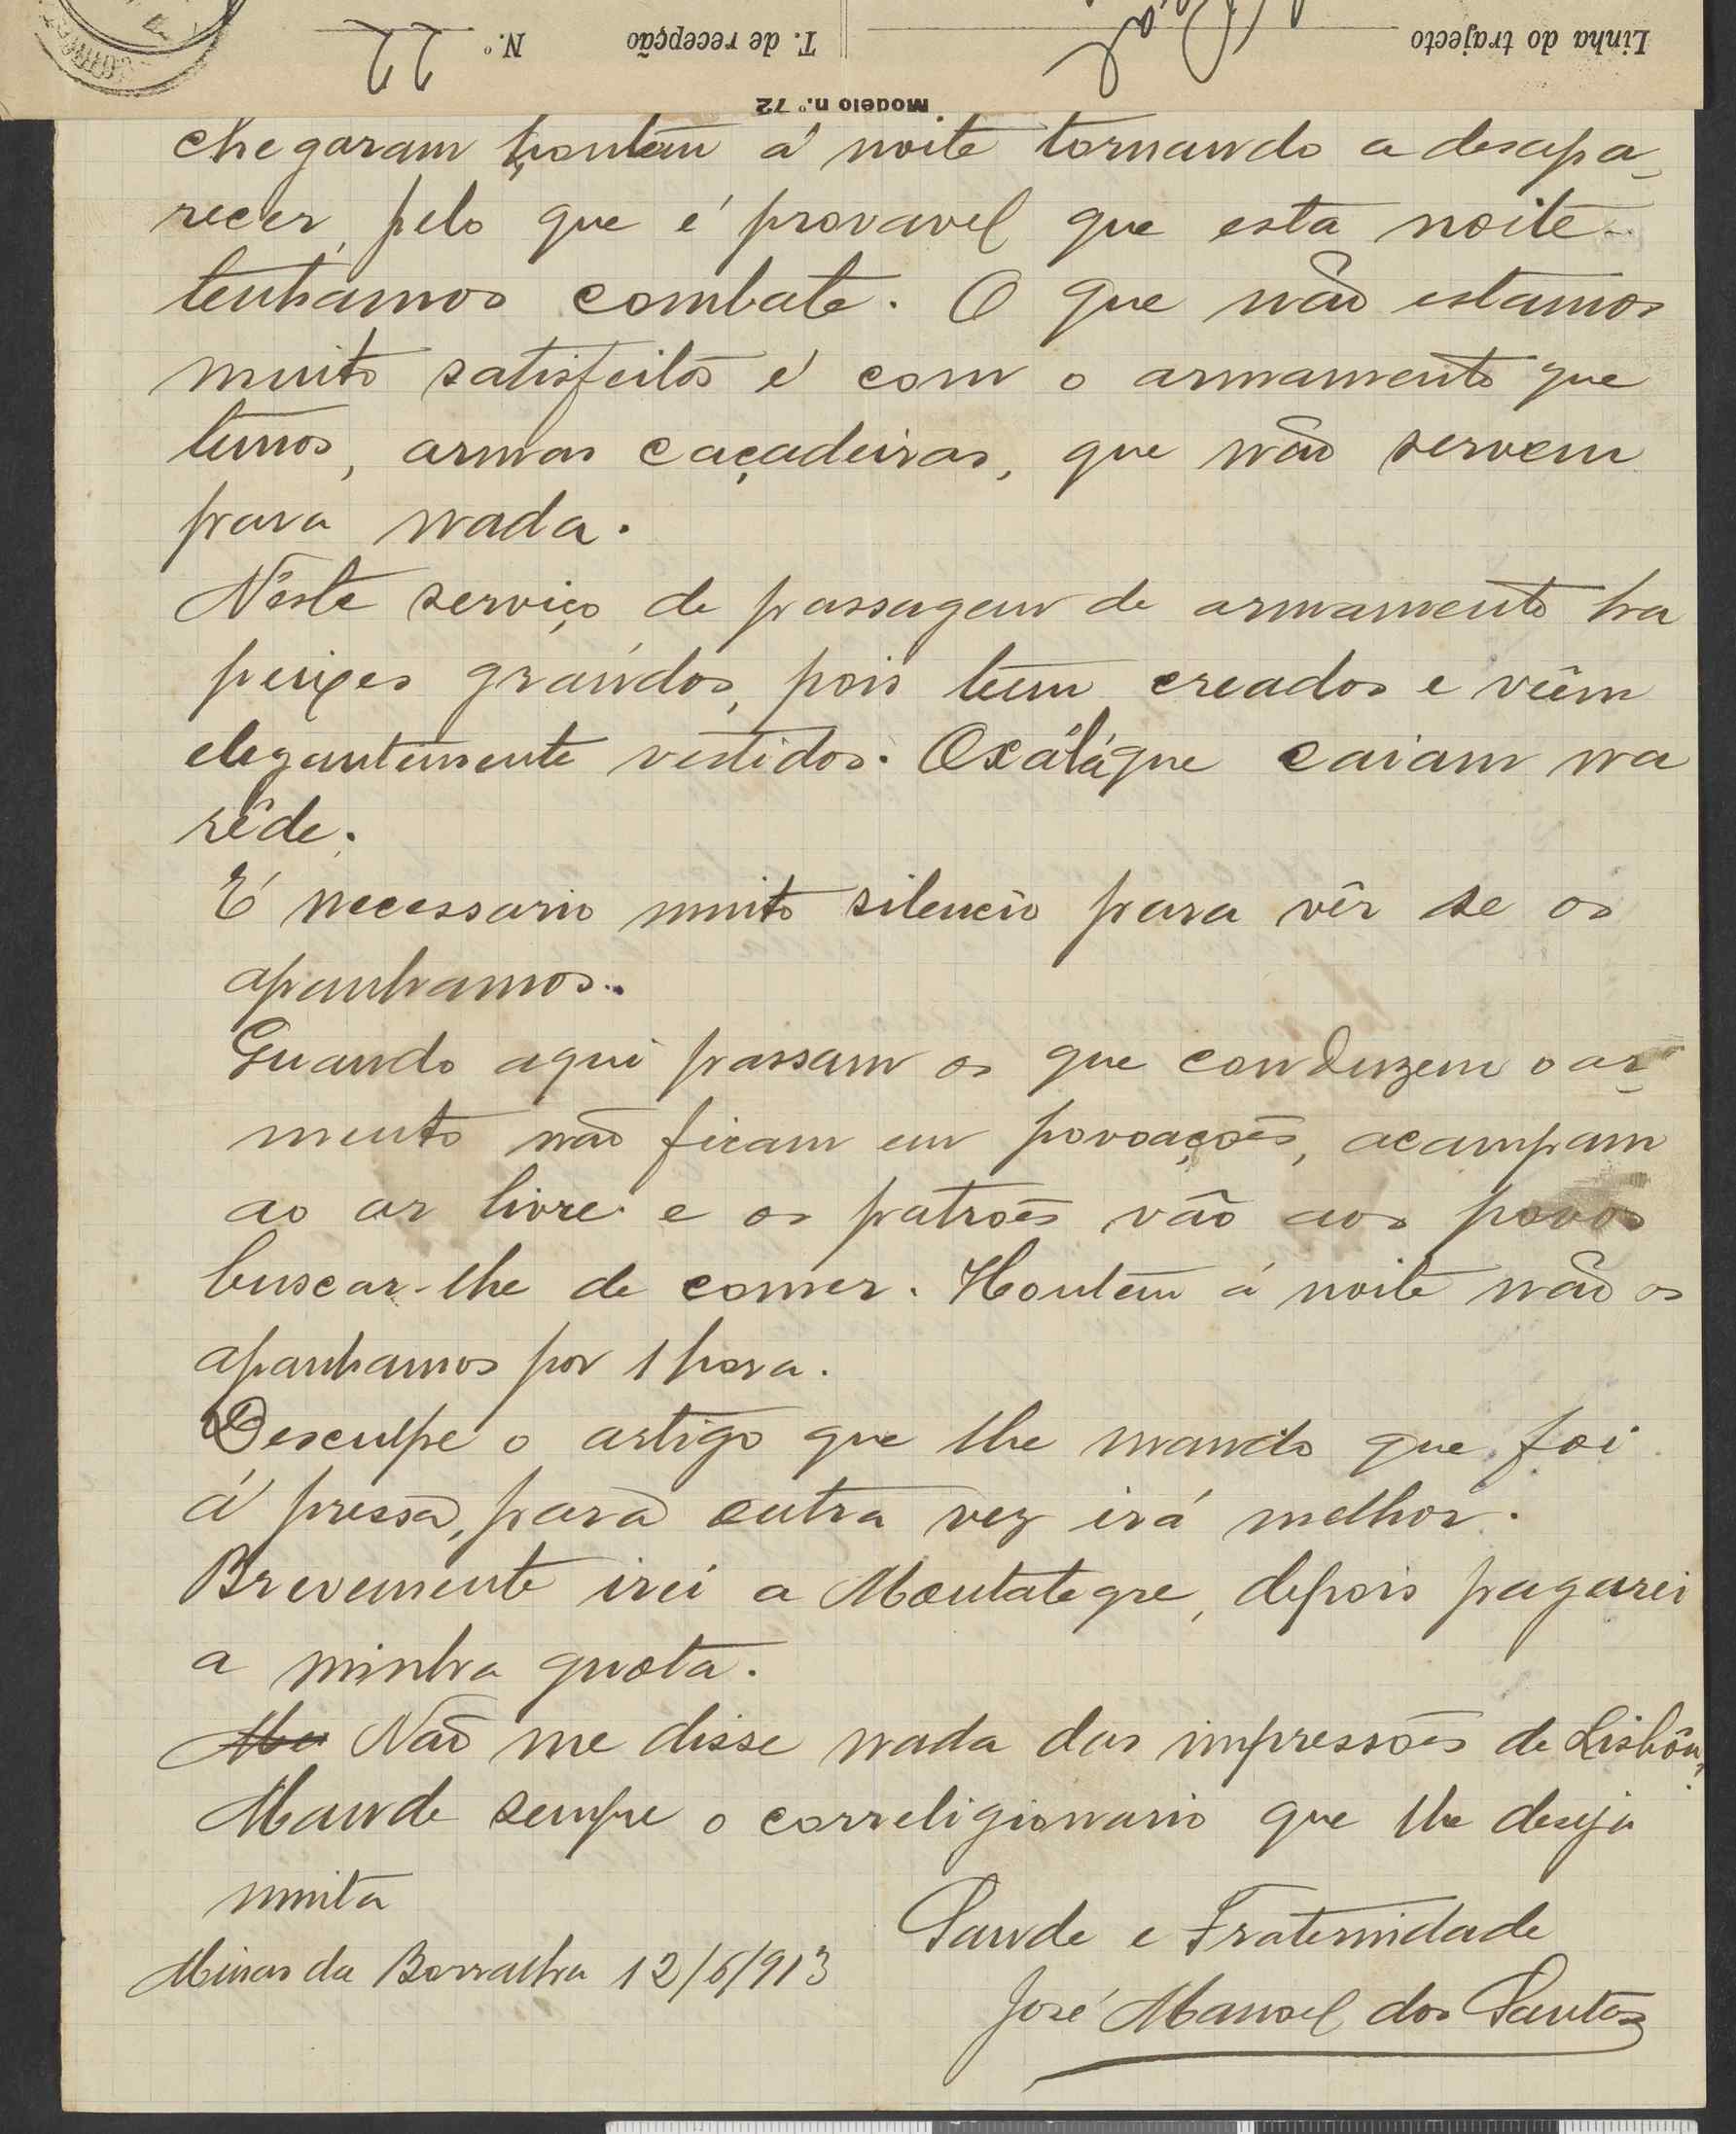 Linha do trajecto
T. de recepção N.º 22
Modelo n.º 72
chegaram hontem á noite tornando a desapa-
recer, pelo que é provavel que esta noite
tenhamos combate. O que não estamos
muito satisfeitos é com o armamento que
temos, armas caçadeiras, que não servem
para nada.
Nêste serviço de passagem de armamento ha
peixes graúdos, pois teem creados e vêem
elegantemente vestidos. Oxálá que caiam na
rêde.
É necessario muito silencio para vêr se os
apanhamos.
Quando aqui passam os que conduzem o ar-
mento não ficam em povoações, acampam
ao ar livre e os patrões vão aos povos
buscar-lhe de comer. Hontem á noite não os
apanhamos por 1 hora.
Desculpe o artigo que lhe mando que foi
á pressa, para outra vez irá melhor.
Brevemente irei a Montalegre, depois pagarei
a minha quota.
Não me disse nada das impressões de Lisbôa,
Mande sempre o correligionario que lhe deseja
muita
Saude e Fraternidade
Minas da Borralha 12/6/913
José Manoel dos Santos